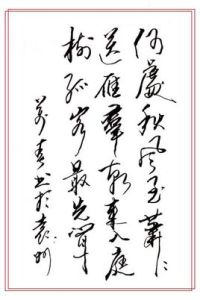 何處秋風至蕭々
送雁羣朝來入庭
樹孤客最先聞
書於袁州